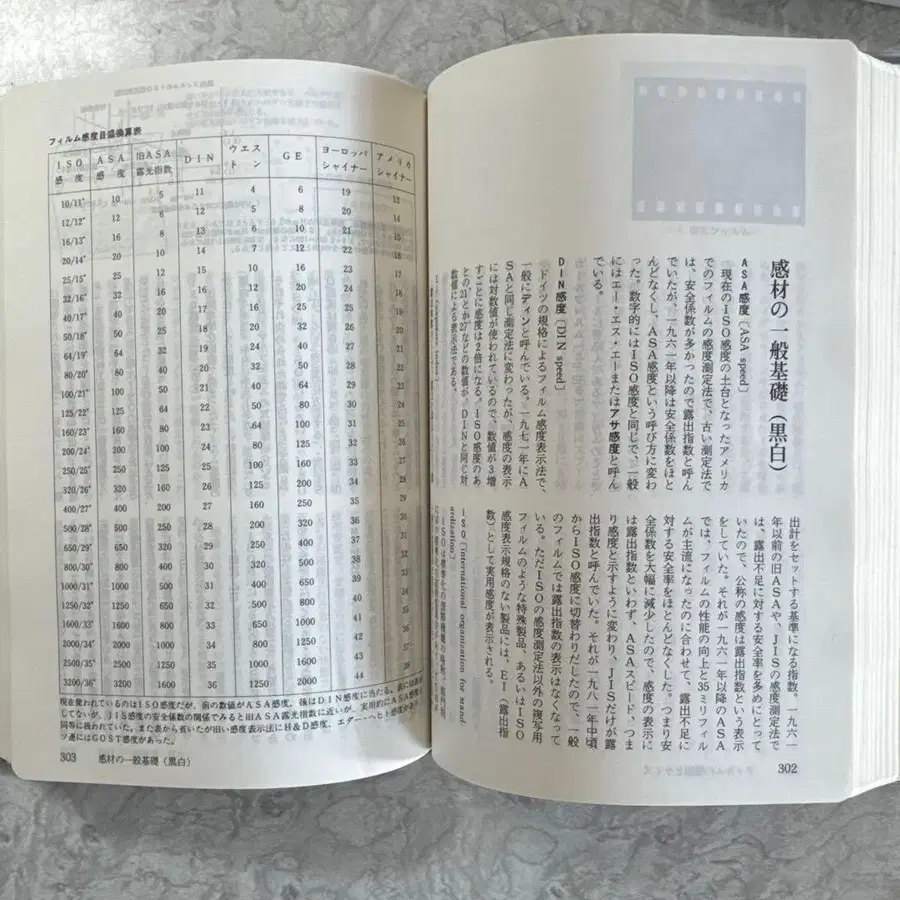 感材の一般基礎（黒白）
ASA感度〔ASA speed〕
現在のISO感度の土台となったアメリカ
でのフィルムの感度測定法で、古い測定法で
は、安全係数が多かったので露出指数と呼ん
でいたが、一九六一年以降は安全係数をほと
んどなくし、ASA感度という呼び方に変わ
った。数字的にはISO感度と同じで、一般
にはエー・エス・エーまたはアサ感度と呼ん
でいる。
DIN感度〔DIN speed〕
ドイツの規格によるフィルム感度表示法で、
一般にディンと呼んでいる。一九七一年にA
SAと同じ測定法に変わったが、感度の表示
には対数値が使われているので、数値が3増
すごとに感度は2倍になる。ISO感度のあ
との21とか27などの数値が、DINと同じ対
数値による表示法である。
出計をセットする基準になる指数。一九六一
年以前の旧ASAや、JISの感度測定法で
は、露出不足に対する安全率を多めにとって
いたので、公称の感度は露出指数という表示
をしていた。それが一九六一年以降のASA
では、フィルムの性能の向上と35ミリフィル
ムが主流になったのに合わせて、露出不足に
対する安全率をほとんどなくした。つまり安
全係数を大幅に減少したので、感度の表示に
は露出指数といわず、ASAスピード、つま
り感度と示すように変わり、JISだけが露
出指数と呼んでいた。それが一九八一年中頃
からISO感度に切替わりだしたので、一般
のフィルムでは露出指数の表示はなくなって
いる。ただISOの感度測定法以外の複写用
フィルムのような特殊製品、あるいはISO
感度表示規格のない製品には、EI（露出指
数）として実用感度が表示される。
ISO〔international organization for stand
302
フィルム感度目盛換算表
ISO感度 ASA感度 旧ASA露光指数 DIN ウエストン GE ヨーロッパシャイナー アメリカシャイナー
10/11° 10 5 11 4 6 19 13
12/12° 12 6 12 5 8 20 14
16/13° 16 8 13 6 10 21 15
20/14° 20 10 14 7 12 22 16
25/15° 25 12 15 10 16 23 17
32/16° 32 16 16 12 20 24 18
40/17° 40 20 17 16 24 25 19
50/18° 50 25 18 20 32 26 20
64/19° 64 32 19 24 40 27 21
80/20° 80 40 20 32 48 28 22
100/21° 100 50 21 40 64 29 23
125/22° 125 64 22 50 80 30 24
160/23° 160 80 23 64 100 31 25
200/24° 200 100 24 80 125 32 26
250/25° 250 125 25 100 160 33 27
320/26° 320 160 26 125 200 34 28
400/27° 400 200 27 160 250 35 29
500/28° 500 250 28 200 320 36 30
650/29° 650 320 29 250 400 37 31
800/30° 800 400 30 320 500 38 32
1000/31° 1000 500 31 400 650 39 33
1250/32° 1250 650 32 500 800 40 34
1600/33° 1600 800 33 650 1000 41 35
2000/34° 2000 1000 34 800 1250 42 36
2500/35° 2500 1250 35 1000 1600 43
3200/36° 3200 1600 36 1250 2000 44
現在使われているのはISO感度だが、前の数値がASA感度、後はDIN感度に当たる。
してないが、JIS感度の安全係数の関係でみると旧ASA露光指数に近いが、実用的にASA感度と
同等に扱われていた。また表から省いたが旧い感度表示法にH&D感度、エダー・ヘヒト感度があり
ソ連にはGOST感度があった。
303 感材の一般基礎（黒白）